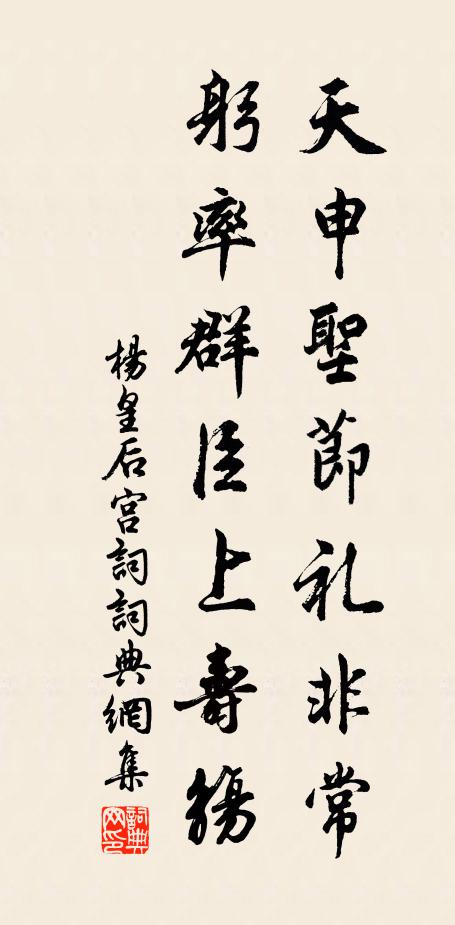 天申聖節礼非常
躬率群臣上壽觴
楊皇后宫詞詞典網集
詞典网印